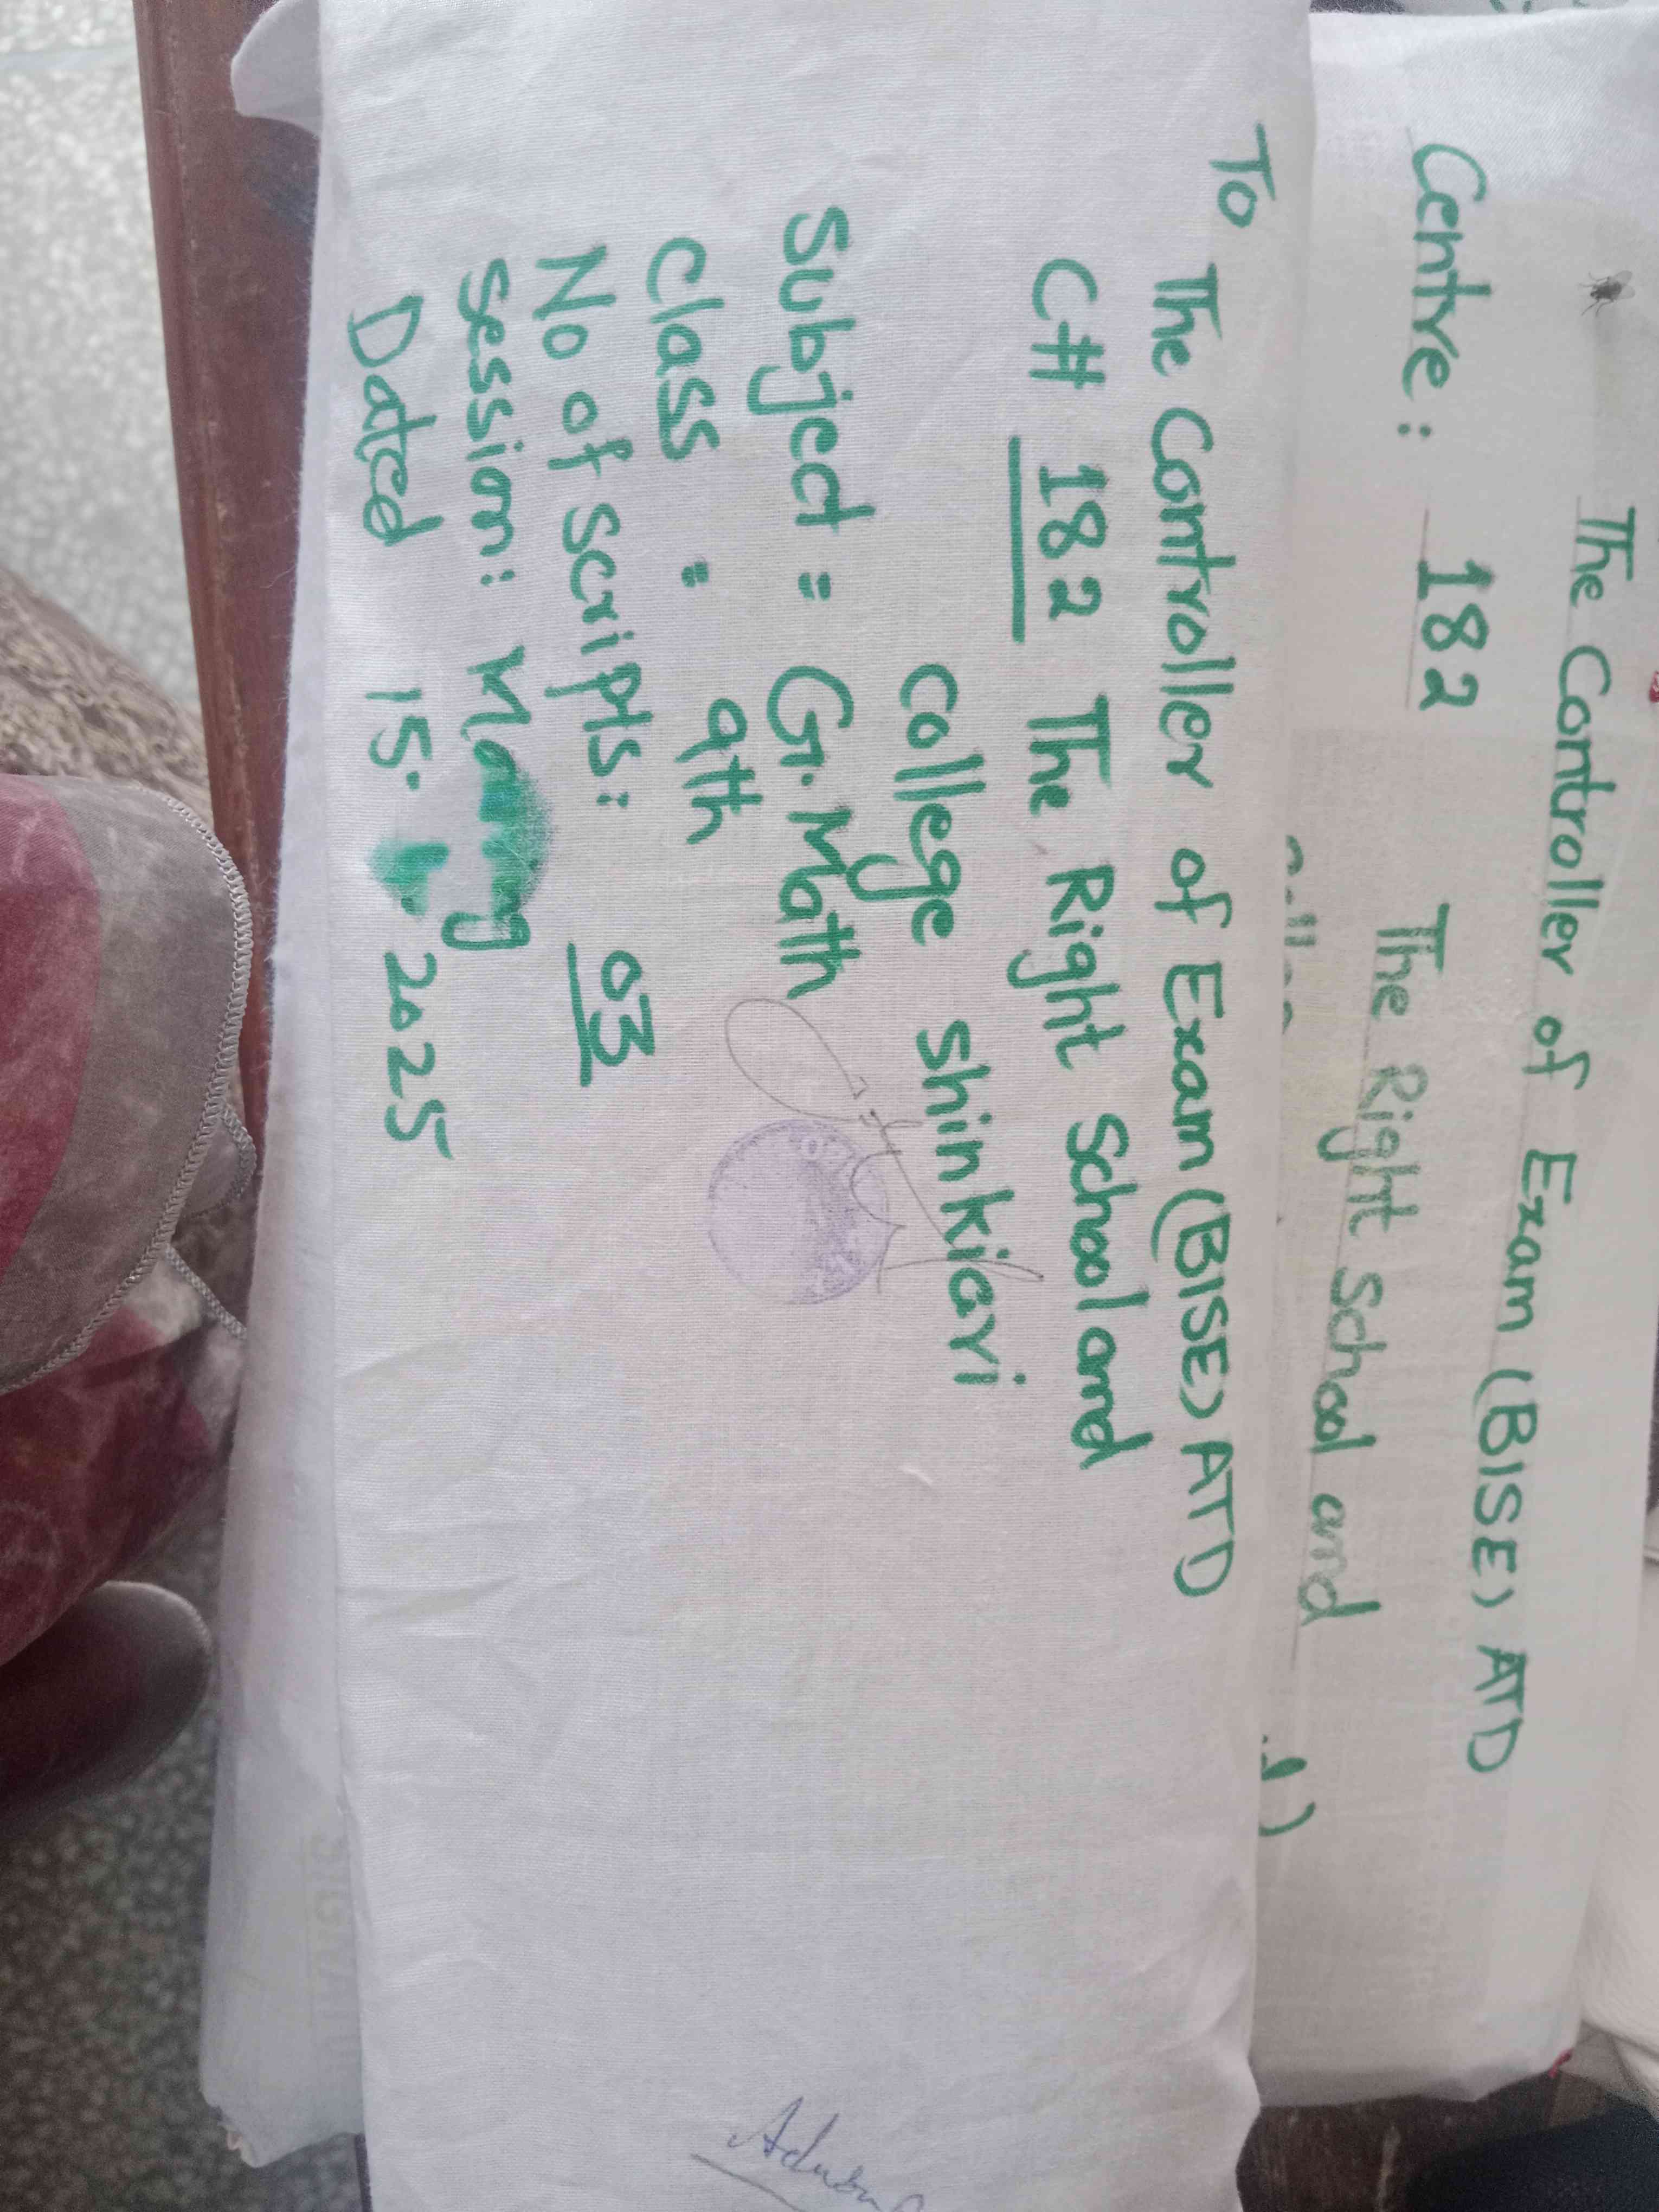 The Controller of Exam (BISE) ATD
Centre: 182 The Right School and
To The Controller of Exam (BISE) ATD
C# 182 The Right School and
College Shinkiari
Subject = G. Math
Class = 9th
No of Scripts: 03
Session:
Dated 15. 2025